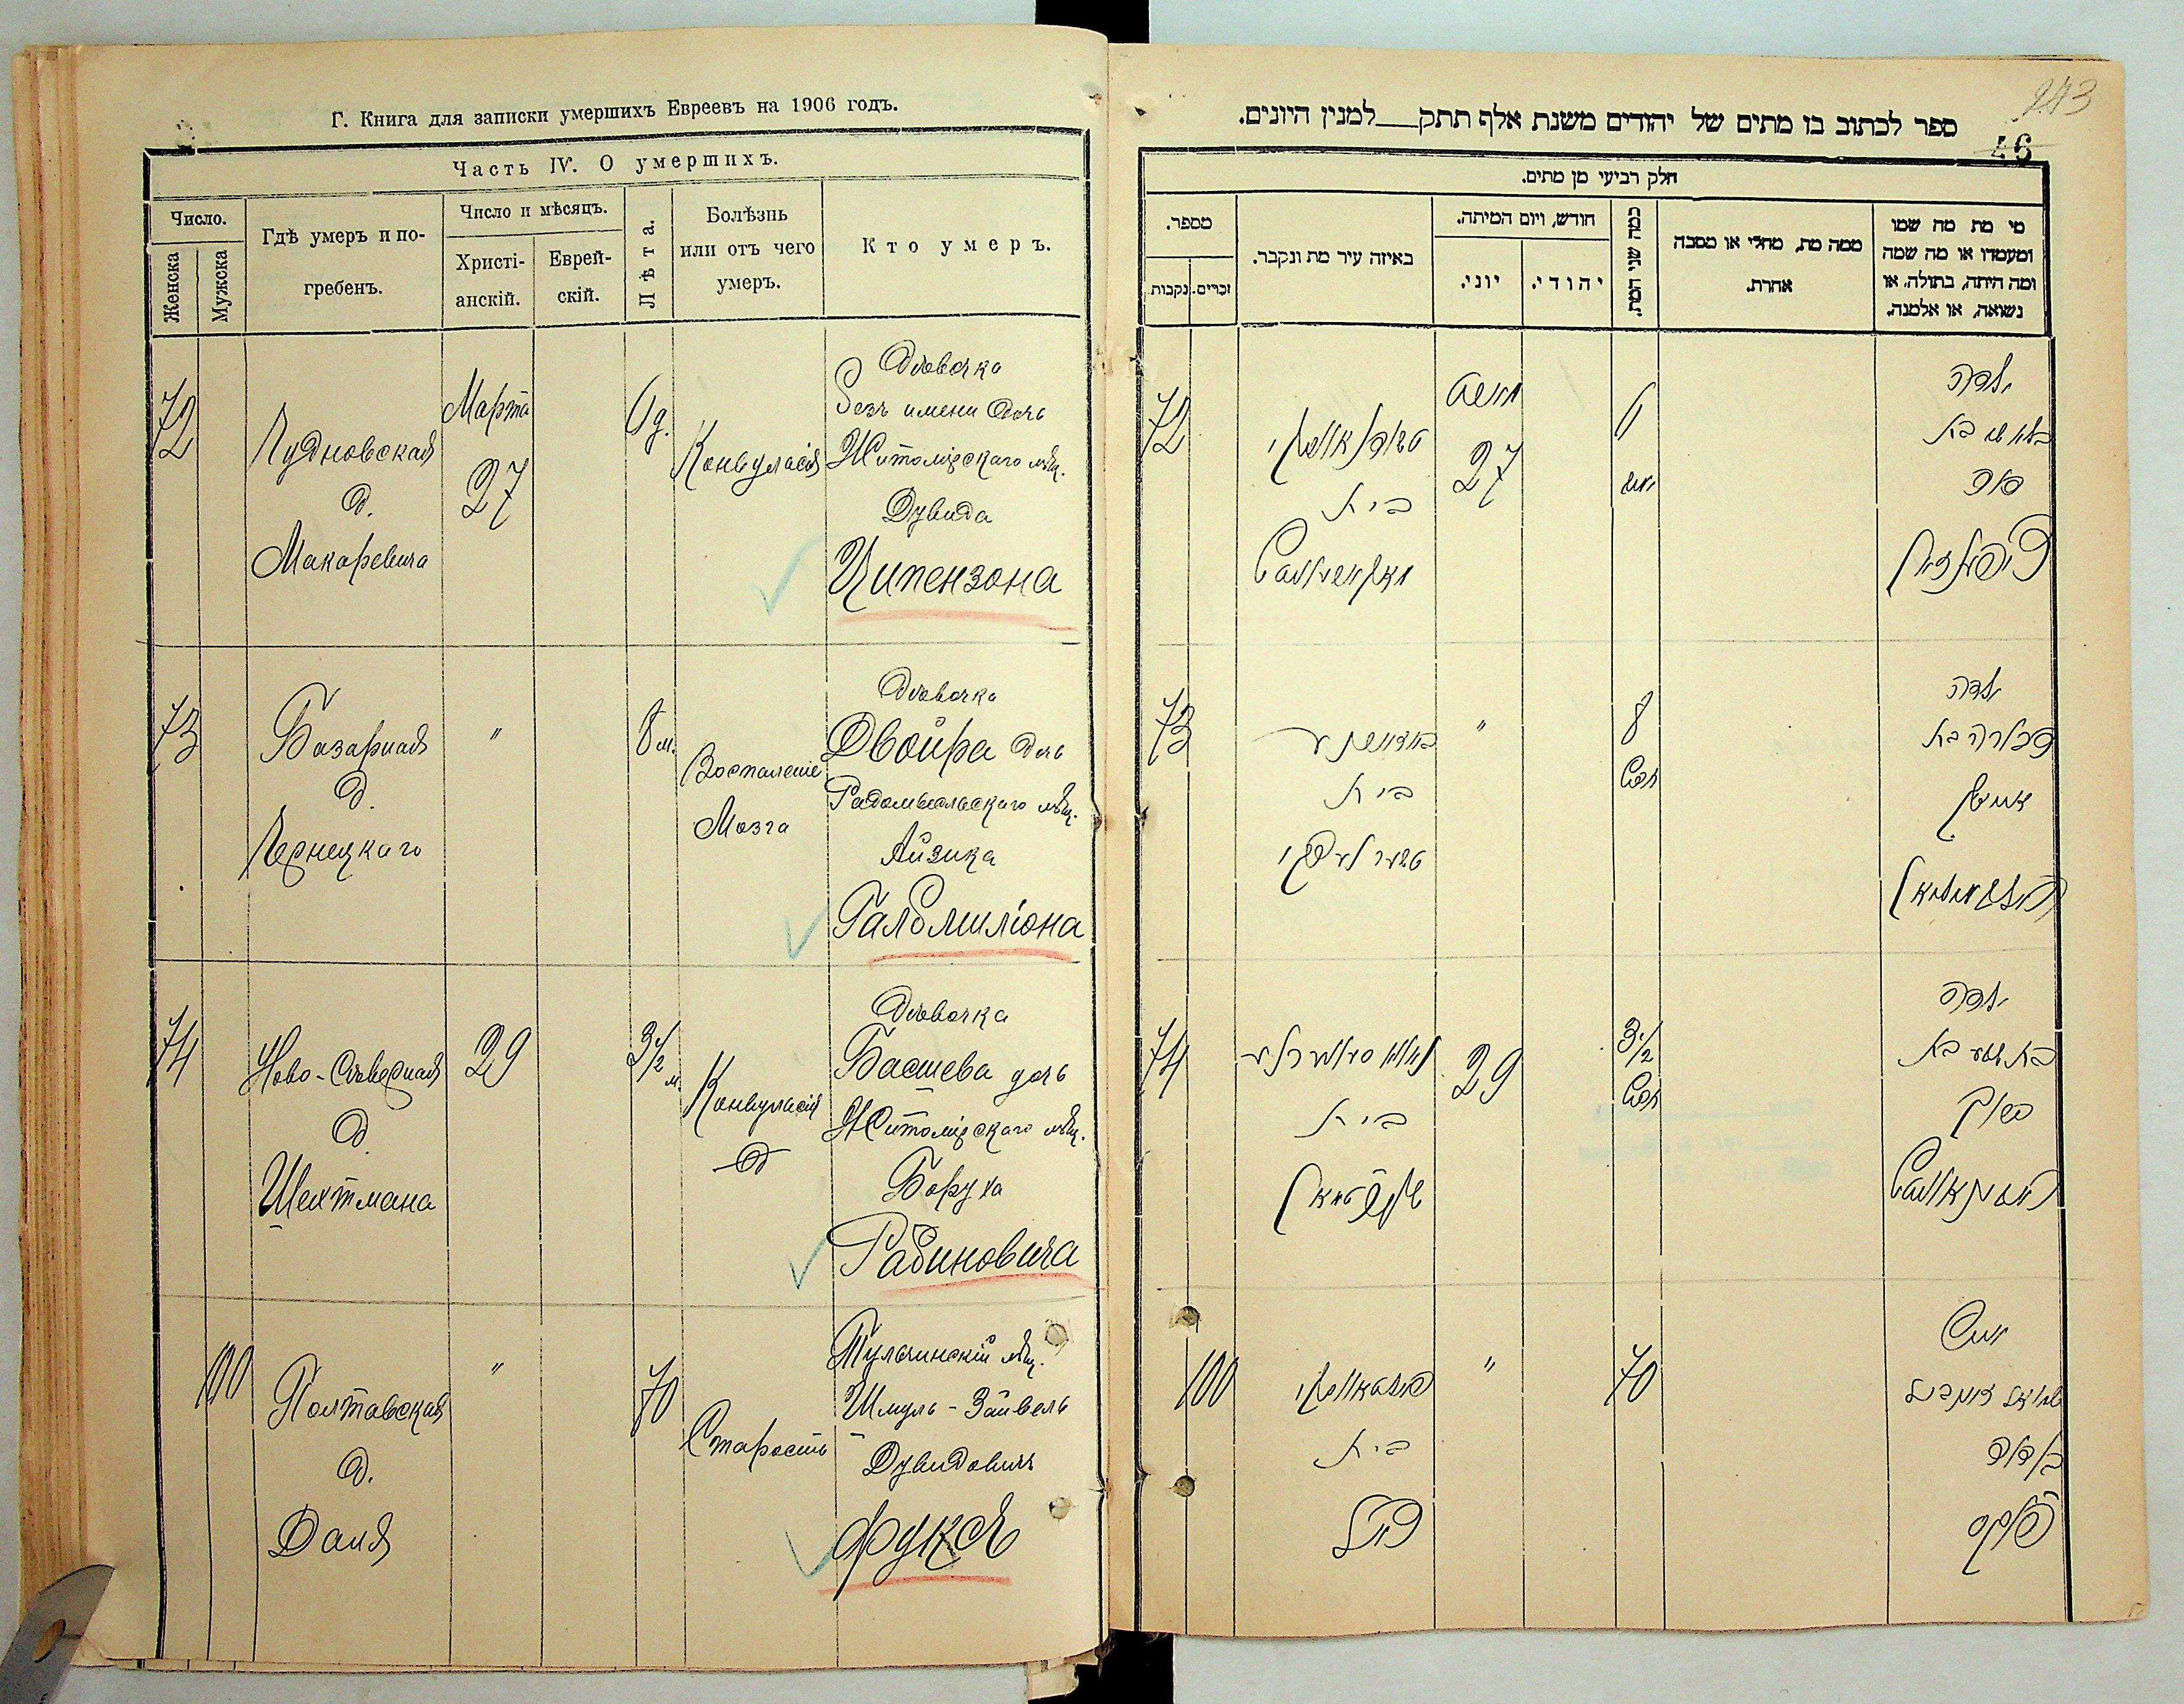 Г. Книга для записки умершихъ Евреевъ на 1906 годъ.
Часть IV. О умершихъ.
Число.
Женска
Мужска
Гдѣ умеръ и по-
гребенъ.
Число и мѣсяцъ.
Христі-
анскій.
Еврей-
скій.
Лѣта.
Болѣзнь
или отъ чего
умеръ.
Кто умеръ.
72
Чудновская
д.
Макаревича
Марта
27
6 д.
Конвульсія
Дѣвочка
безъ имени дочь
Житомірскаго мѣщ.
Дувида
Ципензона
73
Базарная
д.
Чернецкаго
"
8 м.
Воспаленіе
Мозга
Дѣвочка
Двойра дочь
Радомысльскаго мѣщ.
Айзика
Гальмиліона
74
Ново-Сѣверная
д.
Шехтмана
29
3 1/2 м.
Конвульсія
Дѣвочка
Басшева дочь
Житомірскаго мѣщ.
Боруха
Рабиновича
100
Полтавская
д.
Даля
"
70
Старость
Тульчинскій мѣщ.
Шмуль-Зайвель
Дувидовичъ
Фуксъ
243
46
ספר לכתוב בו מתים של יהודים משנת אלף תתק___למנין היונים.
חלק רביעי מן מתים.
מספר.
זכרים.
נקבות
באיזה עיר מת ונקבר.
חודש, ויום המיתה.
יוני.
יהודי.
כמה שני המת.
ממה מת, מחלי או מסבה
אחרת.
מי מת מה שמו
ומעמדו או מה שמה
ומה היתה, בתולה, או
נשואה, או אלמנה.
72
בית
27
6
ילדה
73
בית
"
8
חדש
ילדה
דבורה בת
אייזיק
74
בית
שעכטמאן
29
3 1/2
חדש
ילדה
בת שבע בת
ברוך
ראבינאוויטש
100
בית
דאל
"
70
איש
שמואל זיינוויל
בן דוד
פוקס